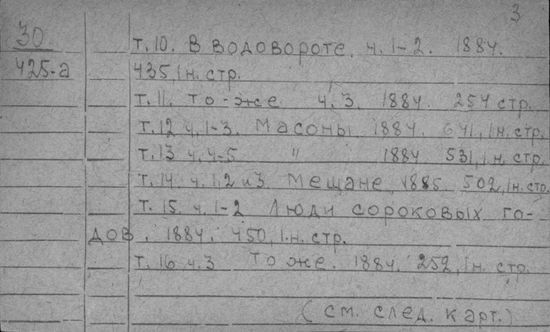 3
30 т.10. В водовороте. ч.1-2. 1884.
425-а 435,1н.стр.
т.11. То-же ч.3. 1884. 254 стр.
т.12 ч.1-3. Масоны. 1884. 641,1н.стр.
т.13 ч.4-5 " 1884 531,1н.стр.
т.14. ч.1,2 и3 Мещане. 1885 502,1н.стр
т.15. ч.1-2 Люди сороковых го-
дов. 1884. 450,1.н.стр.
т.16 ч.3 То же. 1884. 252,1н.стр.
(см. след. карт.)